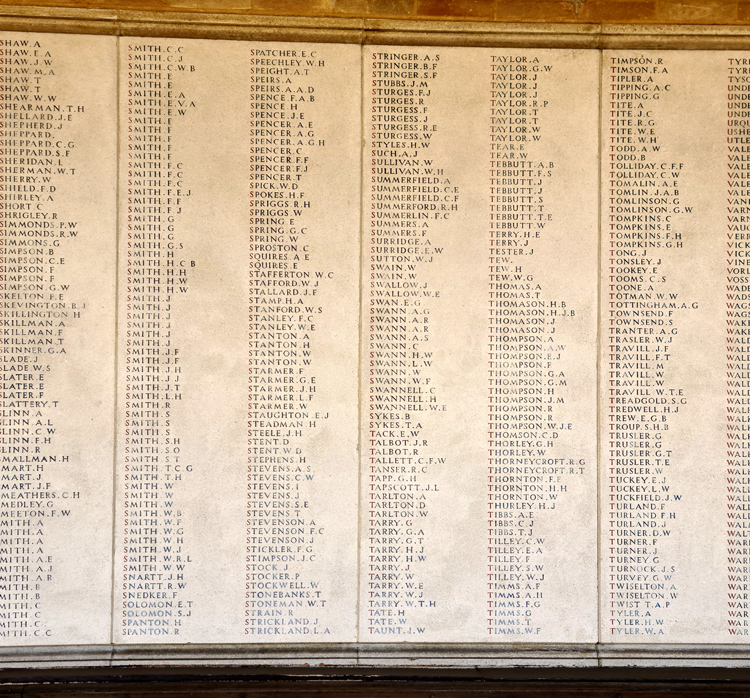 SHAW.A
SHAW.E.A
SHAW.J.W
SHAW.M.A
SHAW.T
SHAW.T
SHAW.W.W
SHEARMAN.T.H
SHELLARD.J.E
SHEPHERD.J
SHEPPARD.
SHEPPARD.C.G
SHEPPARD.S.F
SHERIDAN.L
SHERMAN.W.T
SHERRY.W
SHIELD.F.D
SHIRLEY.A
SHORT.C
SHRIGLEY.R
SIMMONDS.P.W
SIMMONDS.R.W
SIMMONS.G
SIMPSON.B
SIMPSON.C.E
SIMPSON.F
SIMPSON.F
SIMPSON.G
SKELTON.P.E
SKEVINGTON.B.J
SKILLINGTON.H
SKILLMAN.A
SKILLMAN.F
SKILLMAN.T
SKINNER.G.A
SLADE.J
SLADE.W.S
SLATER.E
SLATER.E
SLATER.F
SLATTERY.T
SLINN.A
SLINN.A.L
SLINN.C.W
SLINN.F.H
SLINN.R
SMALLMAN.H
SMART.H
SMART.J
SMART.J.F
SMEATHERS.C.H
SMEDLEY.G
SMEETON.F.W
SMITH.A
SMITH.A
SMITH.A
SMITH.A
SMITH.A.E
SMITH.A.J
SMITH.A.R
SMITH.B
SMITH.B
SMITH.C
SMITH.C
SMITH.C
SMITH.C.C
SMITH.C.C
SMITH.C.J
SMITH.C.W.B
SMITH.E
SMITH.E
SMITH.E.A
SMITH.E.V.A
SMITH.E.W
SMITH.F
SMITH.F
SMITH.F
SMITH.F
SMITH.F
SMITH.F.C
SMITH.F.C
SMITH.F.C
SMITH.F.E.J
SMITH.F.F
SMITH.F.J
SMITH.G
SMITH.G
SMITH.G
SMITH.G.S
SMITH.H
SMITH.H.C.B
SMITH.H.H
SMITH.H.W
SMITH.H.W
SMITH.J
SMITH.J
SMITH.J
SMITH.J
SMITH.J
SMITH.J.F
SMITH.J.F
SMITH.J.H
SMITH.J.J
SMITH.J.T
SMITH.L.H
SMITH.R
SMITH.S
SMITH.S
SMITH.S
SMITH.S.H
SMITH.S.O
SMITH.S.T
SMITH.T.C.G
SMITH.T.H
SMITH.W
SMITH.W
SMITH.W
SMITH.W.B
SMITH.W.F
SMITH.W.G
SMITH.W.H
SMITH.W.J
SMITH.W.R.L
SMITH.W.W
SNARTT.J.H
SNARTT.R.W
SNEDKER.F
SOLOMON.E.T
SOLOMON.S.J
SPANTON.H
SPANTON.R
SPATCHER.E.C
SPEECHLEY.W.H
SPEIGHT.A.T
SPEIRS.A
SPEIRS.A.A.D
SPENCE.F.A.B
SPENCE.H
SPENCE.J.E
SPENCER.A.E
SPENCER.A.G
SPENCER.A.G.H
SPENCER.C
SPENCER.F.F
SPENCER.F.J
SPENCER.T
SPICK.W.D
SPOKES.H.F
SPRIGGS.R.H
SPRIGGS.W
SPRING.E
SPRING.G.C
SPRING.W
SPROSTON.C
SQUIRES.A.E
SQUIRES.E
STAFFERTON.W.C
STAFFORD.W.J
STALLARD.J.F
STAMP.H.A
STANFORD.W.S
STANLEY.F.C
STANLEY.W.E
STANTON.A
STANTON.H
STANTON.W
STANTON.W
STARMER.F
STARMER.G.E
STARMER.J.H
STARMER.L.F
STARMER.W
STAUGHTON.E.J
STEADMAN.H
STEELE.J.H
STENT.D
STENT.W.D
STEPHENS.H
STEVENS.A.S
STEVENS.C.W
STEVENS.I
STEVENS.J
STEVENS.S.E
STEVENS.T
STEVENSON.A
STEVENSON.F.C
STEVENSON.J
STICKLER.F.G
STIMPSON.J.C
STOCK.J
STOCKER.P
STOCKWELL.W
STONEBANKS.T
STONEMAN.W.T
STRAIN.R
STRICKLAND.J
STRICKLAND.L.A
STRINGER.A.S
STRINGER.B.F
STRINGER.S.F
STUBBS.J.M
STURGES.F.J
STURGES.R
STURGESS.F
STURGESS.J
STURGESS.R.E
STURGESS.W
STYLES.H.W
SUCH.A.J
SULLIVAN.W
SULLIVAN.W.H
SUMMERFIELD.A
SUMMERFIELD.C.E
SUMMERFIELD.C.F
SUMMERFORD.R.H
SUMMERLIN.F.C
SUMMERS.A
SUMMERS.F
SURRIDGE.A
SURRIDGE.E.W
SUTTON.W.J
SWAIN.W
SWAIN.W
SWALLOW.J
SWALLOW.W.E
SWAN.E.G
SWANN.A.G
SWANN.A.R
SWANN.A.R
SWANN.A.S
SWANN.C
SWANN.H.W
SWANN.L.W
SWANN.W
SWANN.W.F
SWANNELL.C
SWANNELL.H
SWANNELL.W.E
SYKES.B
SYKES.T.A
TACK.E.W
TALBOT.J.R
TALBOT.R
TALLETT.C.F.W
TANSER.R.C
TAPP.G.H
TAPSCOTT.J.L
TARLTON.A
TARLTON.D
TARLTON.W
TARRY.G
TARRY.G.A
TARRY.G.T
TARRY.H.J
TARRY.H.W
TARRY.J
TARRY.W
TARRY.W.E
TARRY.W.J
TARRY.W.T.H
TATE.H
TATE.W
TAUNT.J.W
TAYLOR.A
TAYLOR.G.W
TAYLOR.J
TAYLOR.J
TAYLOR.J
TAYLOR.R.P
TAYLOR.T
TAYLOR.T
TAYLOR.W
TAYLOR.W
TEAR.E
TEAR.W
TEBBUTT.A.B
TEBBUTT.F.S
TEBBUTT.J
TEBBUTT.J
TEBBUTT.S
TEBBUTT.T
TEBBUTT.T.E
TEBBUTT.W
TERRY.H.E
TERRY.J
TESTER.J
TEW.
TEW.H
TEW.W.G
THOMAS.A
THOMAS.T
THOMASON.H.B
THOMASON.H.J.B
THOMASON.J
THOMASON.J
THOMPSON.A
THOMPSON.A.W
THOMPSON.E.J
THOMPSON.F
THOMPSON.G.A
THOMPSON.G.M
THOMPSON.H
THOMPSON.J.M
THOMPSON.R
THOMPSON.R
THOMPSON.W.J.E
THOMSON.C.D
THORLEY.G.H
THORLEY.W
THORNEYCROFT.R.G
THORNEYCROFT.R.T
THORNTON.F.F
THORNTON.H.H
THORNTON.W
THURLEY.H.J
TIBBS.A.E
TIBBS.C.J
TIBBS.T.J
TILLEY.C.W
TILLEY.E.A
TILLEY.P
TILLEY.S.W
TILLEY.W.J
TIMMS.A.F
TIMMS.A.H
TIMMS.F.G
TIMMS.G
TIMMS.T
TIMMS.W.F
TIMPSON.R
TIMSON.F.A
TIPLER.A
TIPPING.A.C
TIPPING.G
TITE.A
TITE.J.C
TITE.R.G
TITE.W.E
TITE.W.H
TODD.A.W
TODD.B
TOLLIDAY.C.F.F
TOLLIDAY.C.W
TOMALIN.A.E
TOMLIN.J.A.B
TOMLINSON.G
TOMLINSON.G.W
TOMPKINS.C
TOMPKINS.E
TOMPKINS.F.H
TOMPKINS.G.H
TONG.J
TONSLEY.J
TOOKEY.E
TOOMS.C.S
TOONE.A
TOTMAN.W.W
TOTTINGHAM.A.G
TOWNSEND.F
TOWNSEND.S
TRANTER.A.G
TRASLER.W.J
TRAVILL.J.F
TRAVILL.F.T
TRAVILL.M
TRAVILL.W
TRAVILL.W
TRAVILL.W.T.E
TREADGOLD.S.G
TREDWELL.H.J
TREW.E.G.B
TROUP.S.H.B
TRUSLER.G
TRUSLER.G
TRUSLER.G.T
TRUSLER.T.E
TRUSLER.W
TUCKEY.E.J
TUCKEY.L.W
TUCKFIELD.J.W
TURLAND.F
TURLAND.F.H
TURLAND.J
TURNER.D.W
TURNER.F
TURNER.J
TURNEY.G
TURNOCK.J.S
TURVEY.G.W
TWISELTON.A
TWISELTON.W
TWIST.T.A.P
TYLER.A
TYLER.H
TYLER.W.A